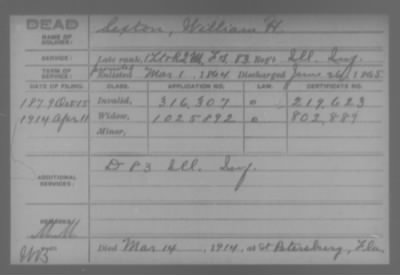 DEAD
NAME OF SOLDIER:
Sexton, William H.
SERVICE:
Late rank, F & S 83 Reg't Ill. Inf.
TERM OF SERVICE:
Enlisted Mar. 1, 1864 Discharged June 26, 1865
DATE OF FILING. CLASS. APPLICATION NO. LAW. CERTIFICATE NO.
1879 Oct 15 Invalid, 316,307 o 219,623
1914 Apr 11 Widow, 1025892 o 802,887
Minor,
ADDITIONAL SERVICES:
D 83 Ill. Inf.
REMARKS:
Died Mar 14, 1914, at St Petersburg, Fla